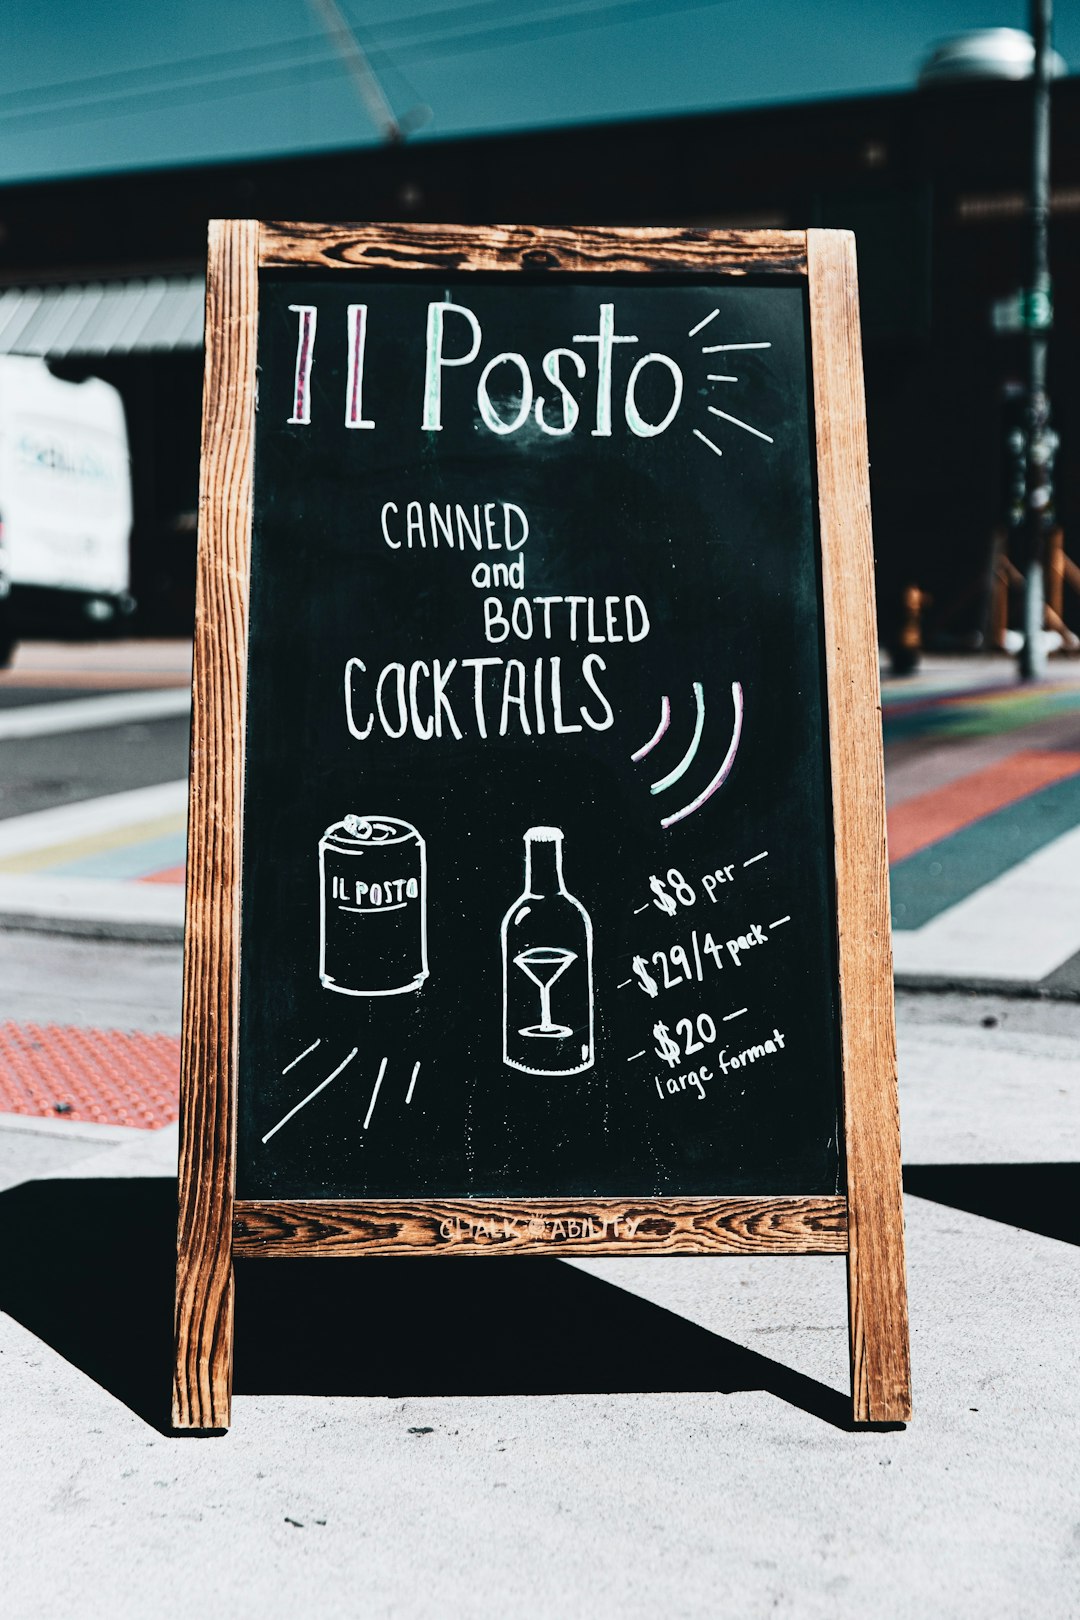 Il Posto
CANNED
and
BOTTLED
COCKTAILS
IL POSTO
$8 per
$29/4 pack
$20
large format
CHALK ABILITY